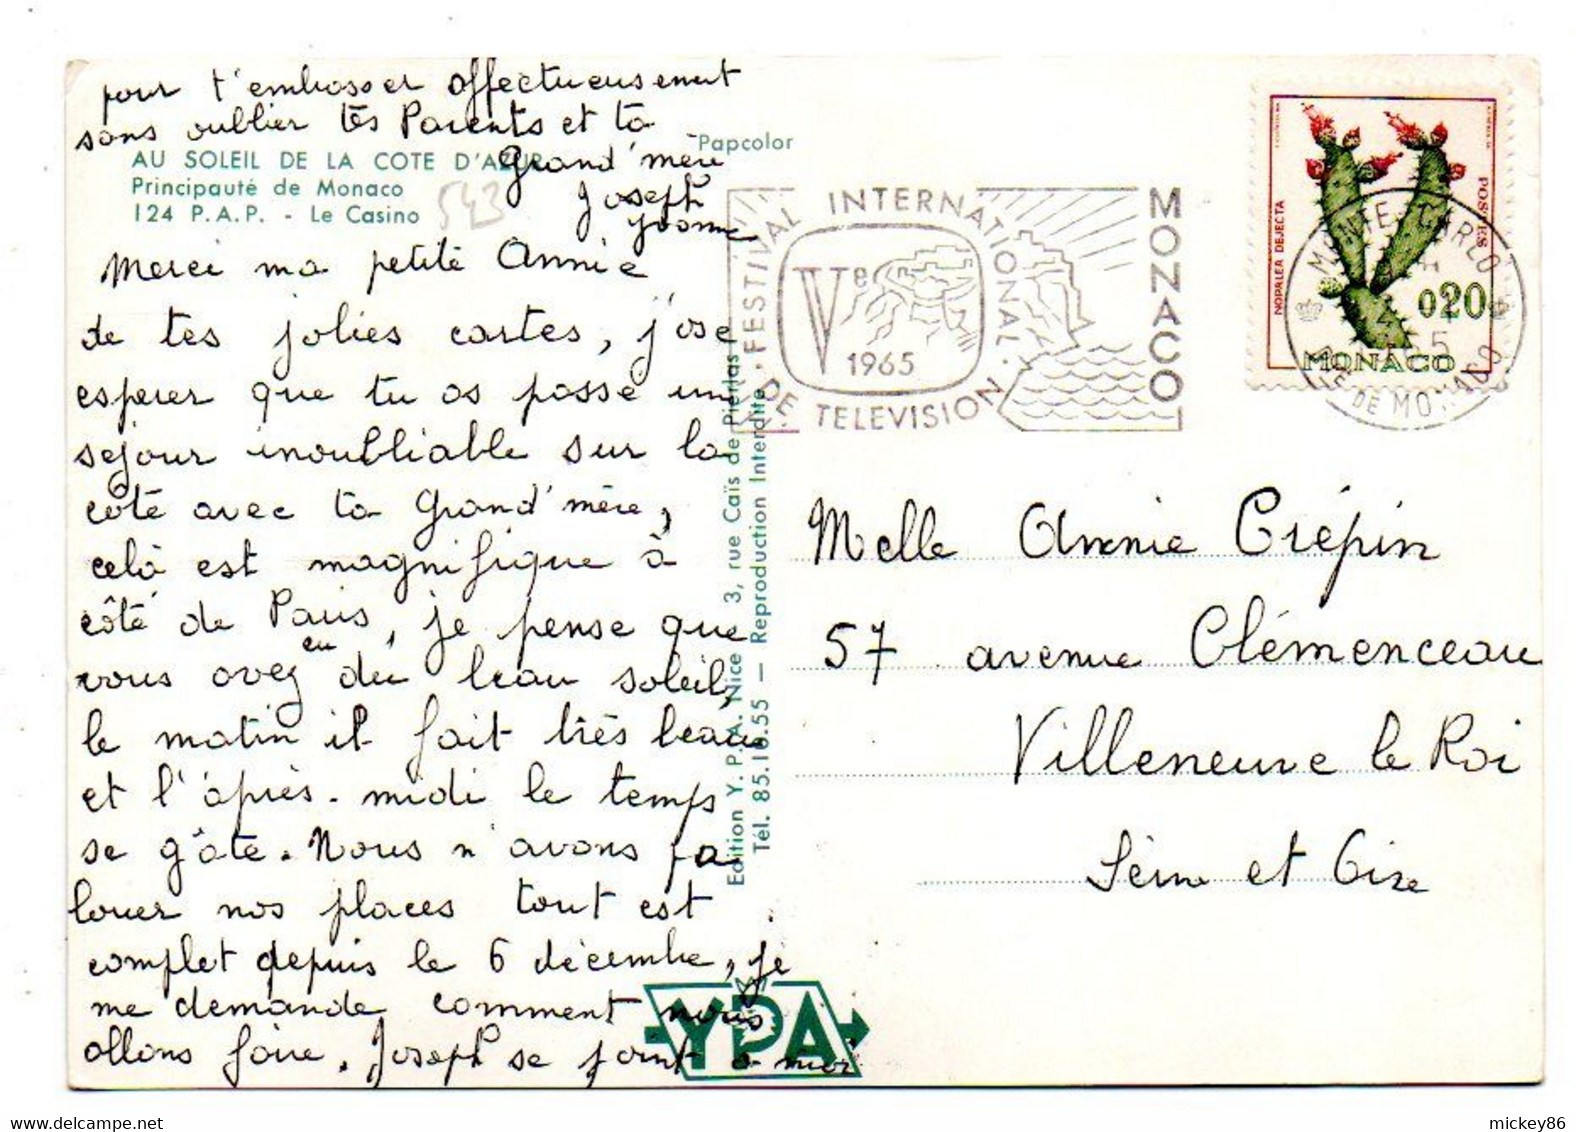 pour t'embrasser affectueusement
sans oublier tes Parents et ta
Grand'mère
Joseph
Yvonne
AU SOLEIL DE LA COTE D'AZUR
Principauté de Monaco
124 P.A.P. - Le Casino
543
Papcolor
Merci ma petite Annie
de tes jolies cartes, j'ose
esperer que tu as passé un
sejour inoubliable sur la
côte avec ta Grand'mère,
celà est magnifique à
côté de Paris, je pense que
vous avez eu du beau soleil,
le matin il fait très beau
et l'après-midi le temps
se gâte. Nous n'avons pa
louer nos places tout est
complet depuis le 6 décembre, je
me demande comment nous
allons faire. Joseph se joint à moi
Edition Y. P. A. Nice 3, rue Caïs de Pierlas
Tél. 85.10.55 — Reproduction Interdite
YPA
FESTIVAL INTERNATIONAL
DE TELEVISION
Ve
1965
MONACO
NOPALEA DEJECTA
POSTES
0,20
MONACO
MONTE-CARLO
PTE DE MONACO
Melle Annie Crépin
57 avenue Clémenceau
Villeneuve le Roi
Seine et Oise
mickey86